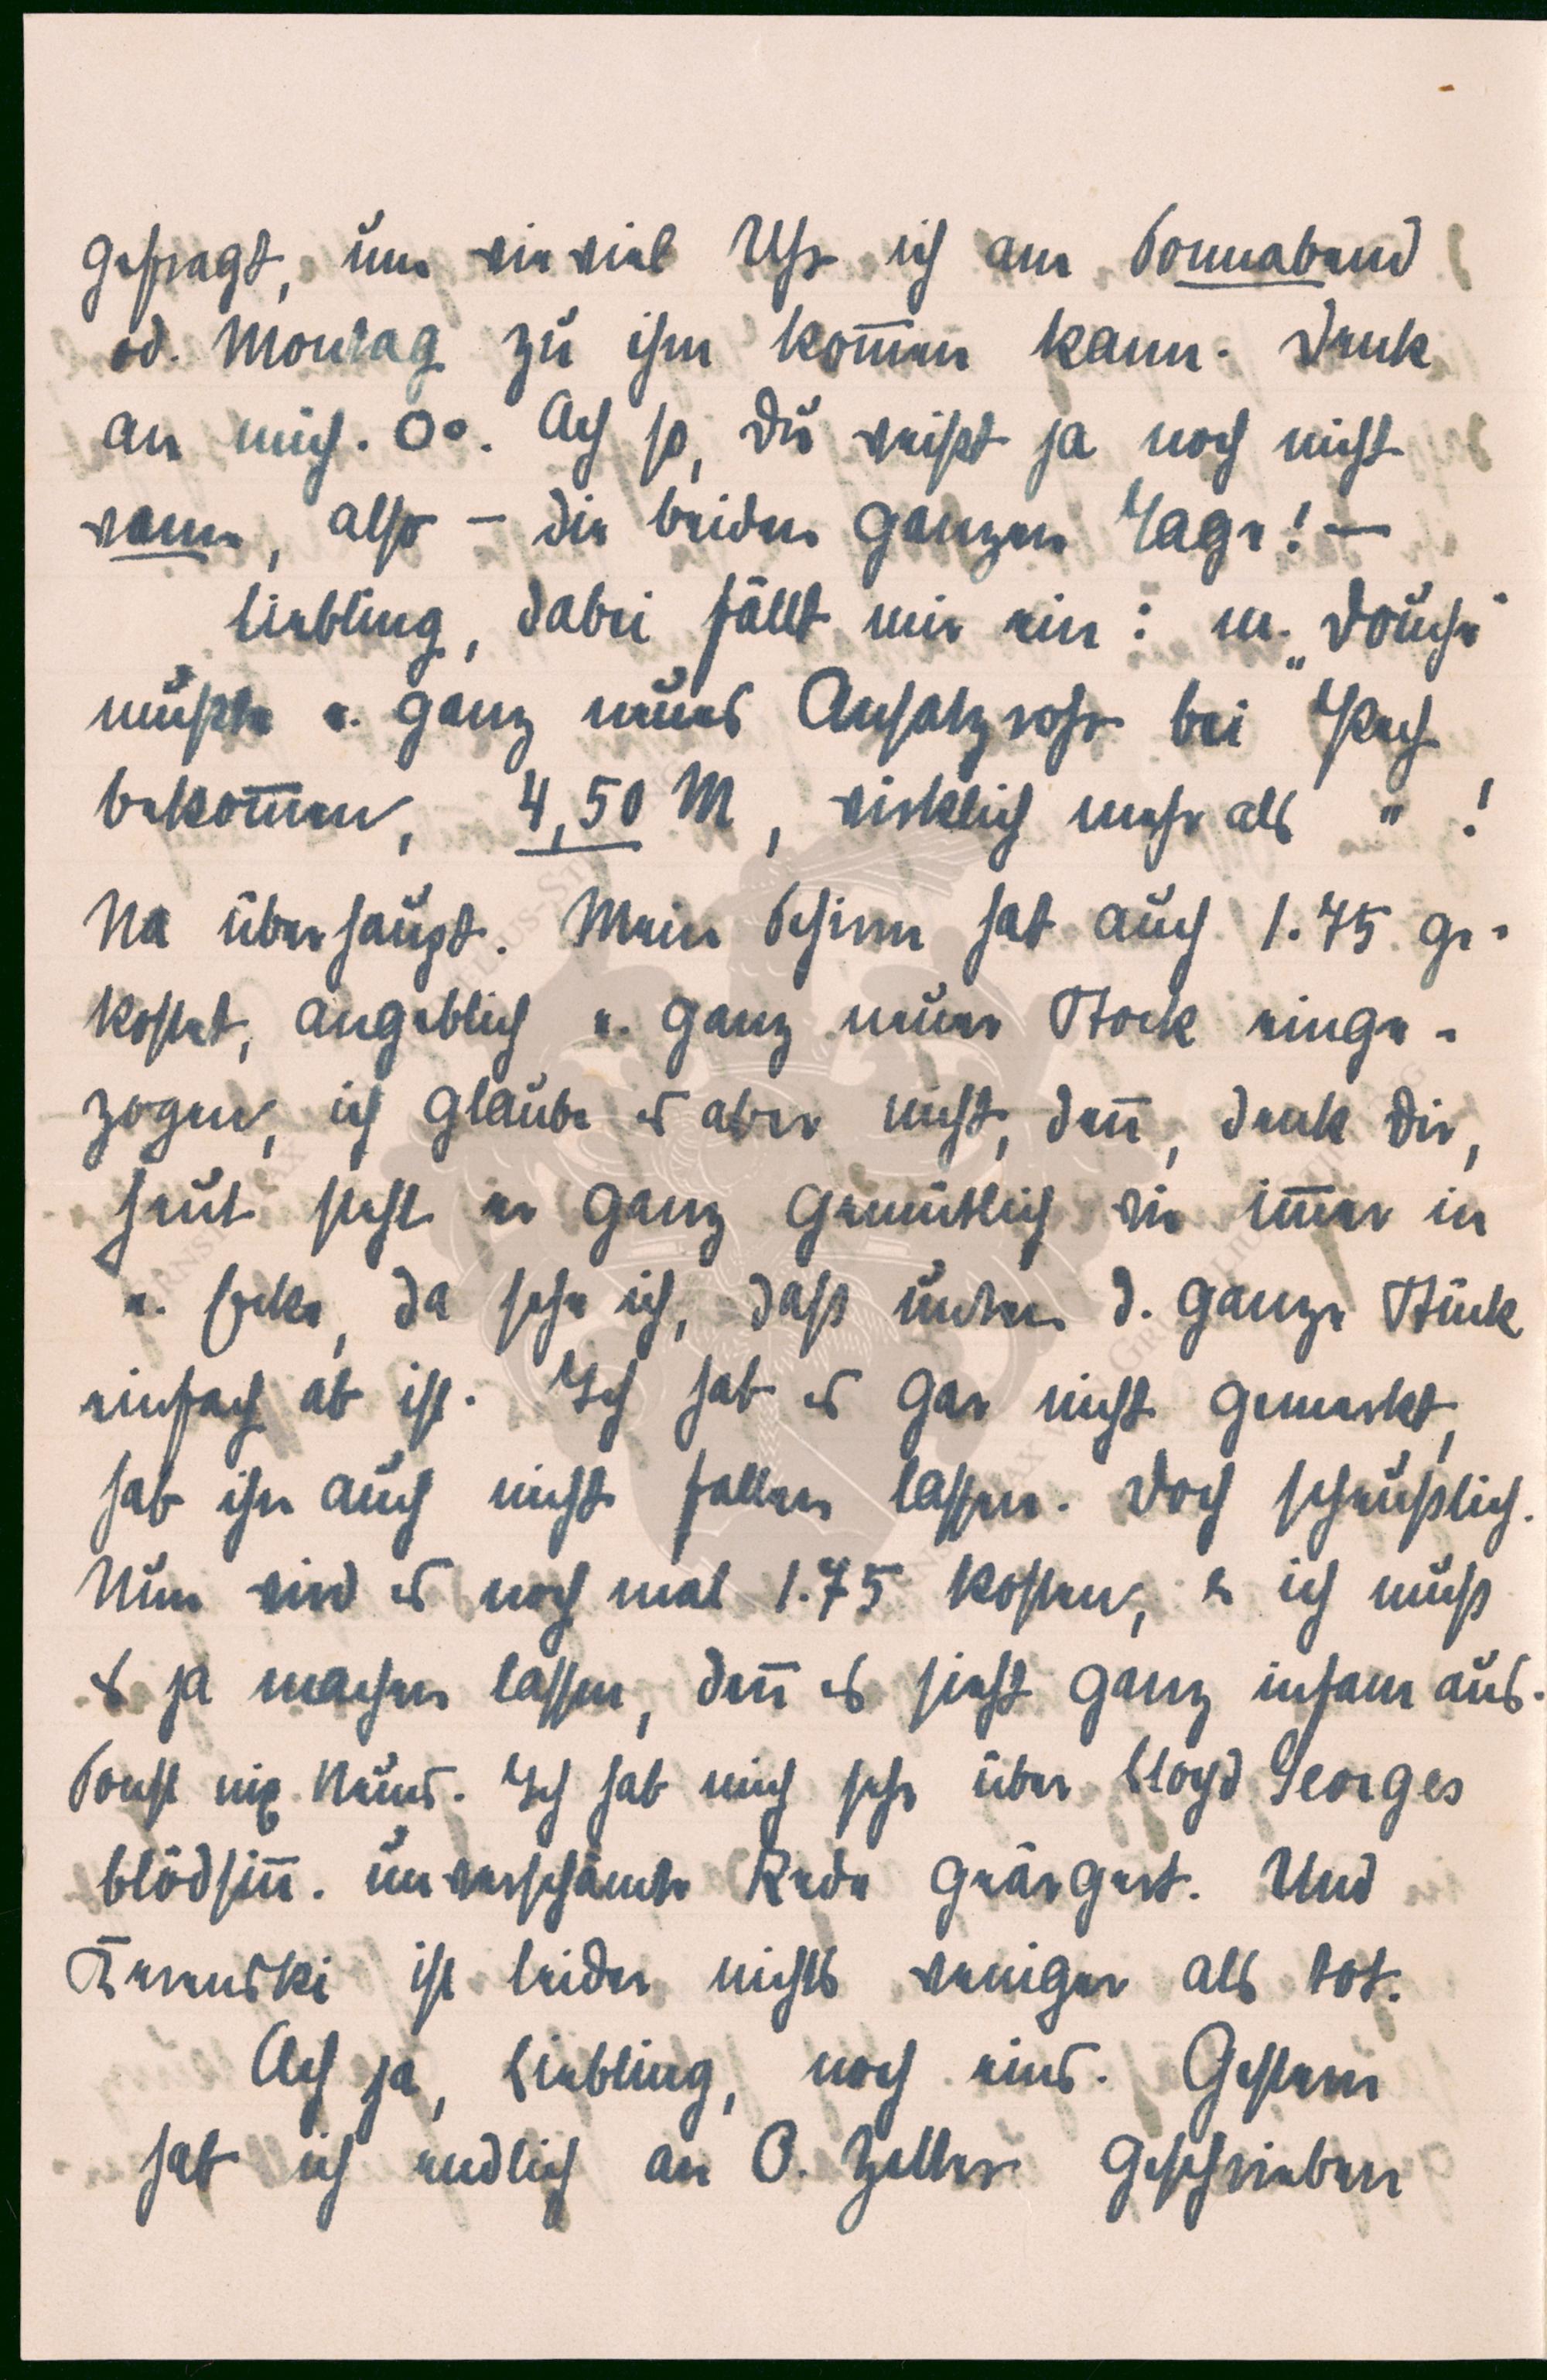 gefragt, um wieviel Uhr ich am Sonnabend
od. Montag zu ihm kom̅en kann. Denk
an mich. Oo. Ach so, Du weißt ja noch nicht
wann, also – die beiden ganzen Tage! –
Liebling, dabei fällt mir ein: m. „Douche"
mußte e. ganz neues Ansatzrohr bei
bekom̅en, 4,50 M, wirklich mehr als " !
Na überhaupt. Mein Schirm hat auch 1.75 ge-
kostet, angeblich e. ganz neuer Stock einge-
zogen, ich glaube es aber nicht, den̅, denk Dir,
heut steht er ganz gemütlich wie im̅er in
e. Ecke, da sehe ich, daß unten d. ganze Stück
einfach ab ist. Ich hab es gar nicht gemerkt,
hab ihn auch nicht fallen lassen. Doch scheußlich.
Nun wird es noch mal 1.75 kosten, u ich muß
es ja machen lassen, den̅ es sieht ganz infam aus.
Sonst nix Neues. Ich hab mich sehr über Lloyd Georges
blödsin̅. unverschämte Rede geärgert. Und
Kerenski ist leider nichts weniger als tot.
Ach ja, Liebling, noch eins. Gestern
hab ich endlich an O. Zeller geschrieben